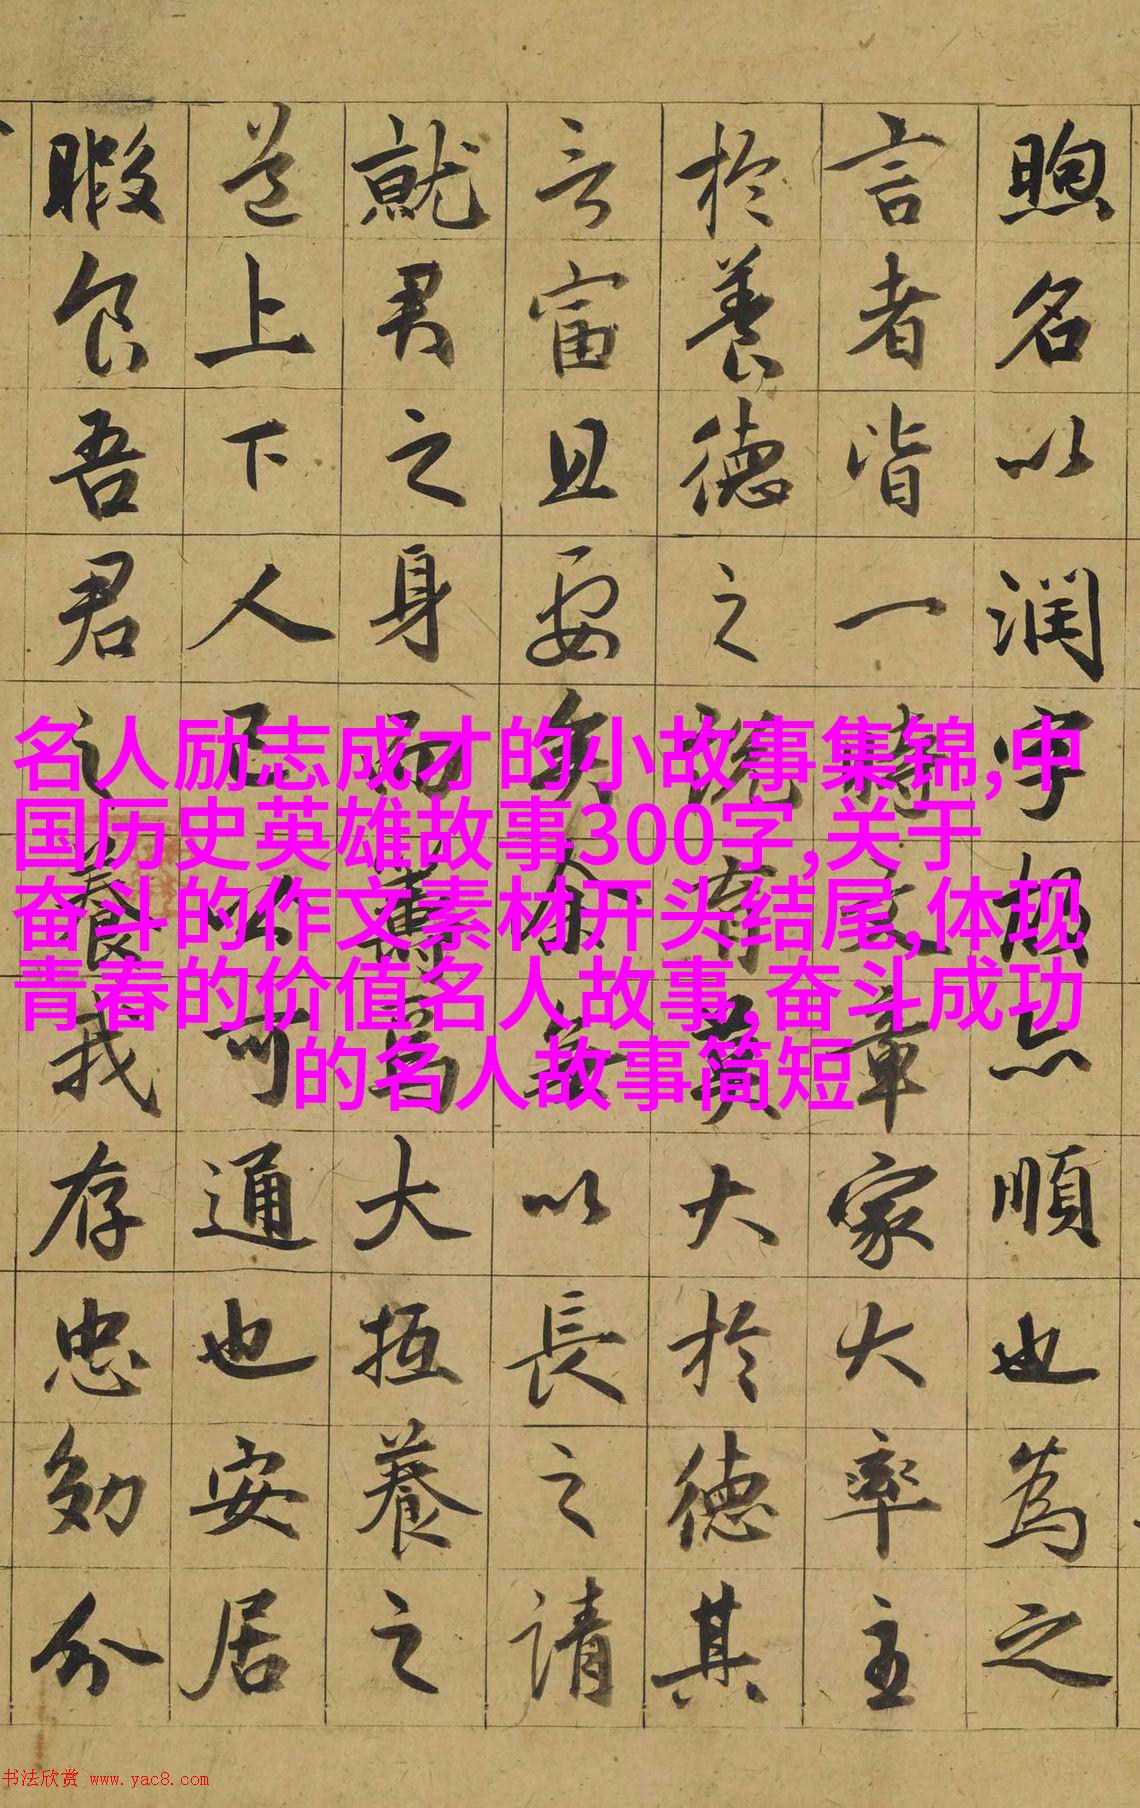 煦名以润字順也為之
言者皆一文章家大率主
於養德之說有大於德其
言富且要矣余以長之請
就君之身而為大抵養之
上下人可通也安居
暇食吾君之養我存忠効分
名人励志成才的小故事集锦,中
国历史英雄故事300字,关于
奋斗的作文素材开头结尾,体现
青春的价值名人故事,奋斗成功
的名人故事简短
书法欣赏 www.yac8.com